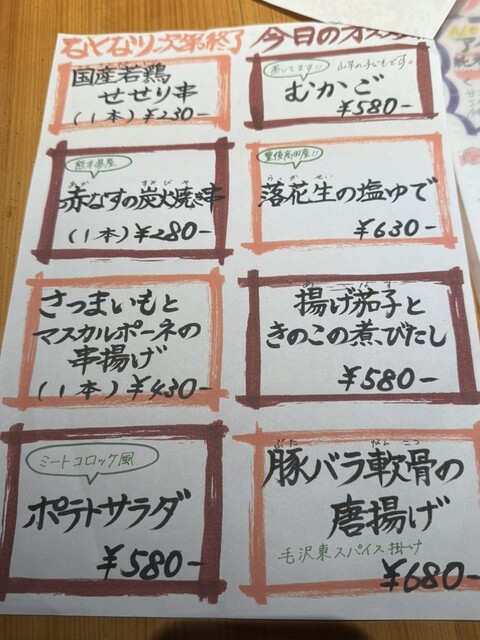 なくなり次第終了
今日のオススメ
国産若鶏
せせり串
(1本)¥230-
蒸してます!!
山芋の子どもです。
むかご
¥580-
熊本県産
あか すみびや
赤なすの炭火焼き串
(1本)¥280-
豊後高田産!!
らっかせい
落花生の塩ゆで
¥630-
さつまいもと
マスカルポーネの
串揚げ
(1本)¥430-
あ なす
揚げ茄子と
きのこの煮びたし
¥580-
ミートコロッケ風
ポテトサラダ
¥580-
ぶた なんこつ
豚バラ軟骨の
唐揚げ
毛沢東スパイス掛け
¥680-